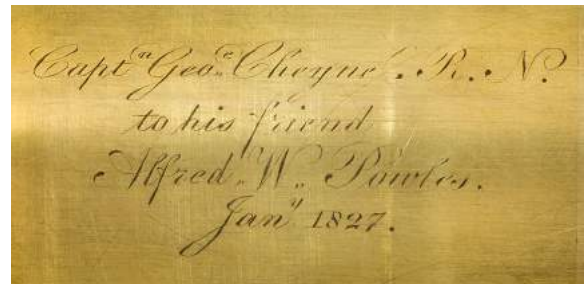 Captn Geoe Cheyne. R. N.
to his friend
Alfred. W. Powles.
Jany 1827.